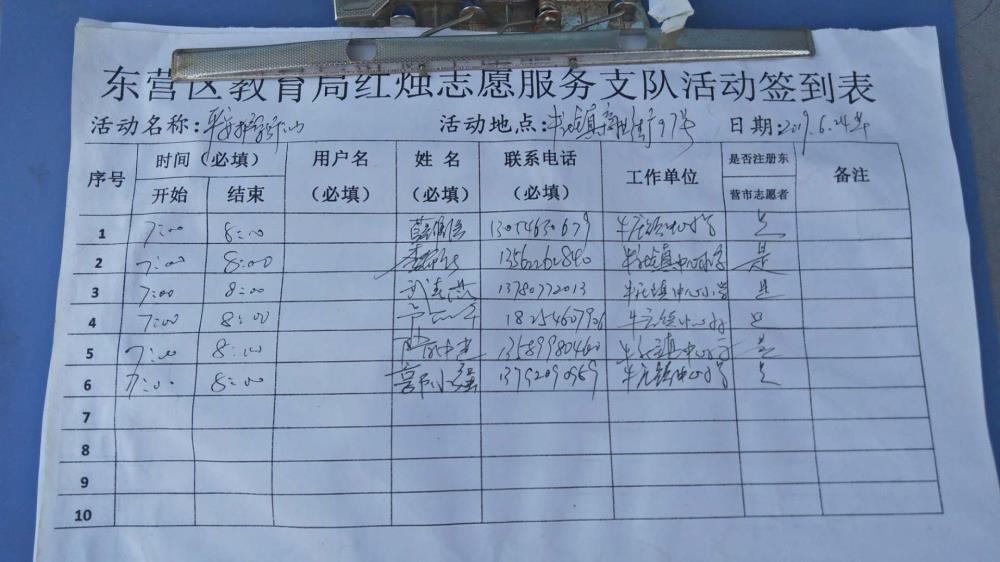 东营区教育局红烛志愿服务支队活动签到表
活动名称: 活动地点:牛庄镇 街97号 日期:2019.6.24
序号 时间(必填) 用户名(必填) 姓名(必填) 联系电话(必填) 工作单位 是否注册东营市志愿者 备注
开始 结束
1 7:00 8:00 13054630679 牛庄镇中心小学 是
2 7:00 8:00 13562262840 牛庄镇中心小学 是
3 7:00 8:00 13780772013 牛庄镇中心小学 是
4 7:00 8:00 18254607926 牛庄镇中心小学 是
5 7:00 8:00 13589980460 牛庄镇中心小学 是
6 7:00 8:00 小强 13792090969 牛庄镇中心小学 是
7
8
9
10